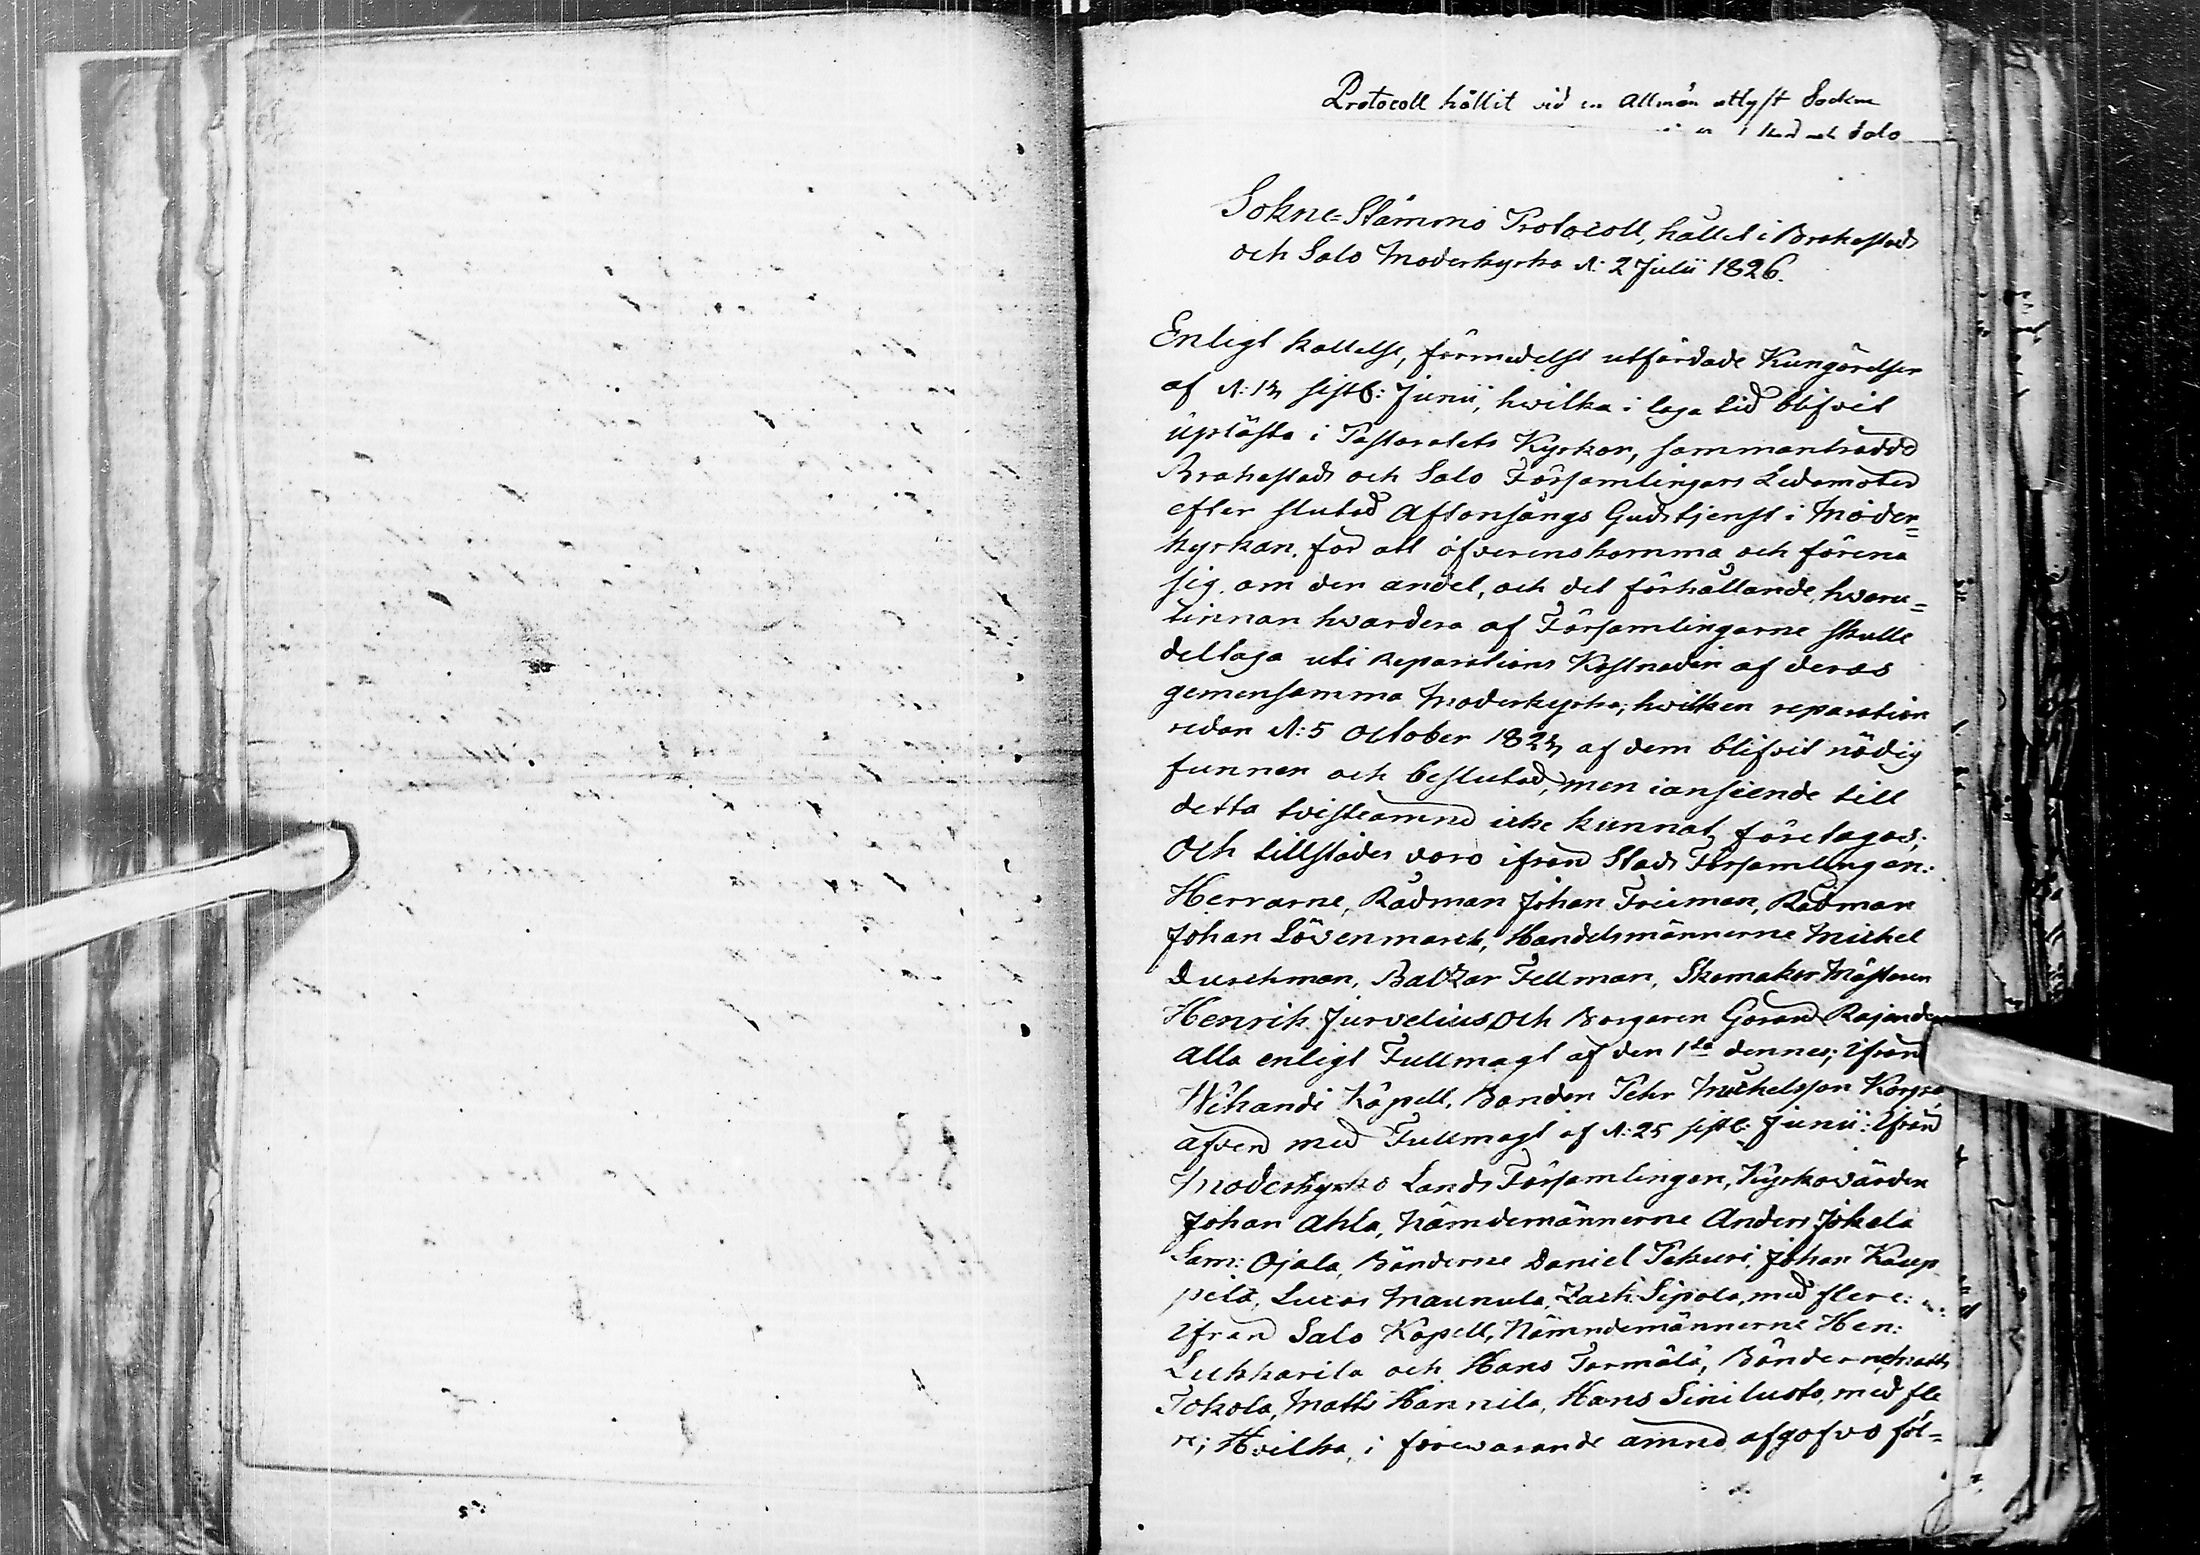 Protocoll hållit vid en Allmän utlyst Sockne
Salo
Sokne-Stämmo Protocoll, hållet i Brahestads
och Salo Moderkyrka d: 2 Julii 1826.
Enligt kallelse, förmedelst utfärdade Kungörelser
af d: 14 sistl: Junii, hvilka i laga tid blifvit
upläste i Pastoratets Kyrkor, sammanträdde
Brahestads och Salo Församlingars Ledamöter
efter slutad Aftonsångs Gudstjenst i Moder=
kyrkan, för att öfverenskomma och förena
sig, om den andel, och det förhållande, hvaru=
tinnan hvardera af Församlingarne skulle
deltaga uti Reparations Kostnaden af deras
gemensamma Moderkyrka; hvilken reparation
redan d: 5 October 1824 af dem blifvit nödig
funnen och beslutad, men i anseende till
detta tvisteämne icke kunnat företagas;
Och tillstädes voro ifrån Stads Församlingen:
Herrarne, Rådman Johan Frieman, Rådman
Johan Lövenmarck, Handelsmännerne Michel
Duschman, Baltzar Fellman, Skomakar Mästaren
Henrik Jurvelius och Borgaren Göran
Alla enligt Fullmagt af den 1sta dennes; ifrån
Wihandi Kapell, Bonden Petter Michelsson Korpra
äfven med Fullmagt af d: 25 sistl: Junii: Ifrån
Moderkyrko Lands Församlingen, Kyrkovärden
Johan Ahla, Nämdemännerne Anders Jokela
Sam: Ojala, Bönderne Daniel Pekuri, Johan Kaup
pila, Lucas Maunula, Zach: Sipola, med flere:
ifrån Salo Kapell, Nämndemännerne Hen:
Lukkarila och Hans Tormälä, Bönderne Matts
Tokola, Matts Hannila, Hans Siniluoto, med fle
re; Hvilka, i förevarande ämne afgofvo föl=